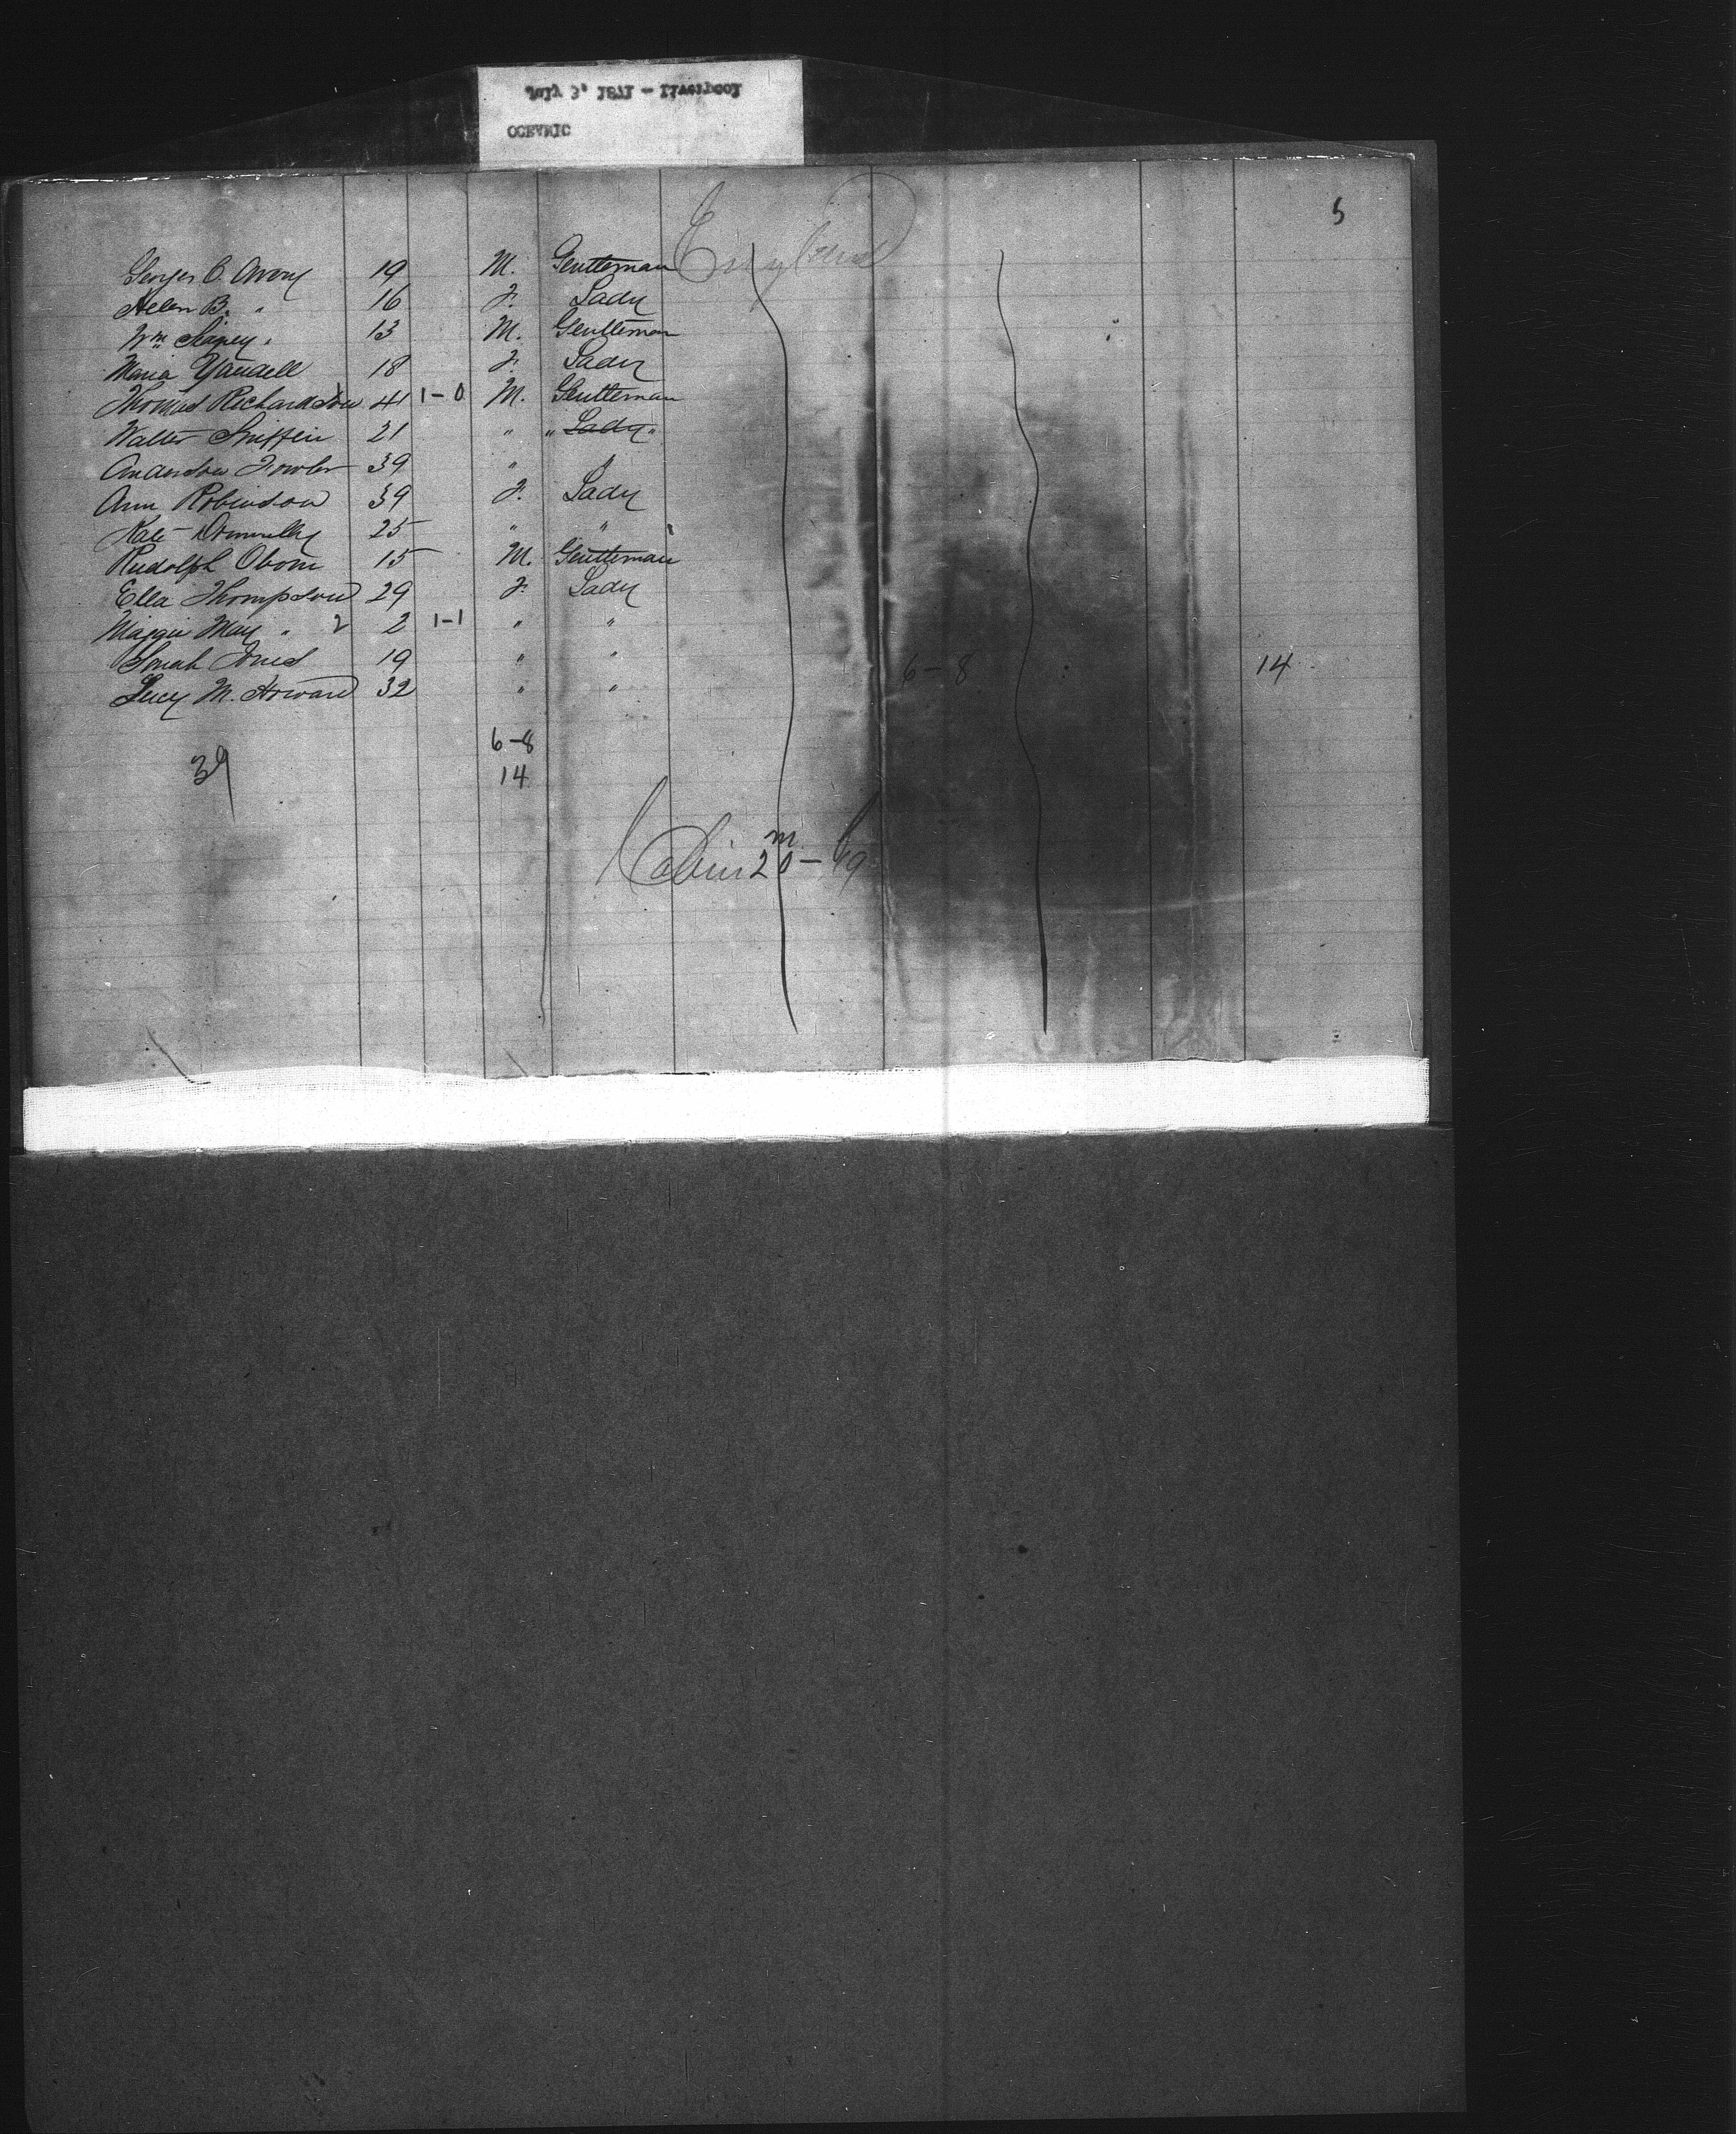 OCEANIC
July 3, 1871 - Liverpool
5
England
George C. Avery 19 M. Gentleman
Helen B. " 16 F. Lady
Wm 13 M. Gentleman
Maria Yandell 18 F. Lady
Thomas Richardson 41 1-0 M. Gentleman
Walter Sniffin 21 " " Lady "
Anderson Fowler 39 "
Ann Robinson 39 F. Lady
Kate Donnelly 25 " "
Rudolph 15 M. Gentleman
Ella Thompson 29 F. Lady
Maggie May " 2 2 1-1 " "
Sarah Jones 19 " " 6-8 14
Lucy M. Howard 32 " "
6-8
39 14
m.
Cabin 20 - 19